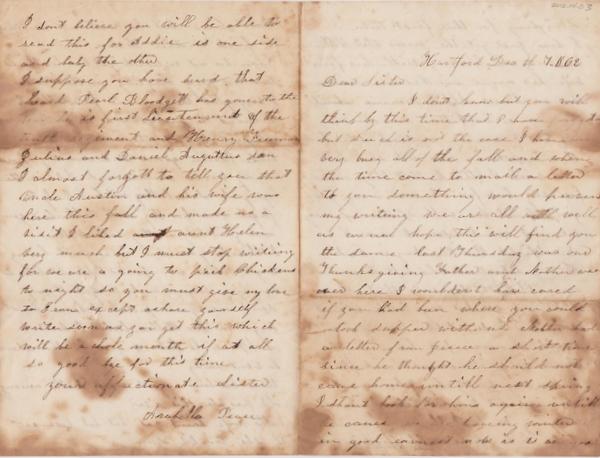 I dont believe you will be able to
read this for Addie is one side
and baby the other
I suppose you have herd that
Pearl Blodgett has gone to the
he is first Lieutenant of the
regiment and Henry
Julius and Daniel Augustus son
I almost forgott to tell you that
uncle Austin and his wife was
here this fall and made us a
visit I liked aunt Helen
very much but I must stop writing
for we are a going to pick chickens
to night so you must give my love
to Fran except a share yourself
write soon as you get this which
will be a whole month if at all
so good bye for this time
your affectionate sister
Hartford Dec th 7. 1862
Dear Sister
I dont know but you will
think by this time that I have
but such is not the case I have
very busy all of the fall and when
the time come to mail a letter
to you something would prevent
my writing we are all well
as we can hope this will find you
the same last Thursday was our
Thanksgiving Father and Mother was
over here I wouldent have cared
if you had been where you could
took supper with us Mother had
a letter from a short time
since he thought he should not
come home untill next spring
I shant look for him again untill
he comes winter
in good earnest now as is